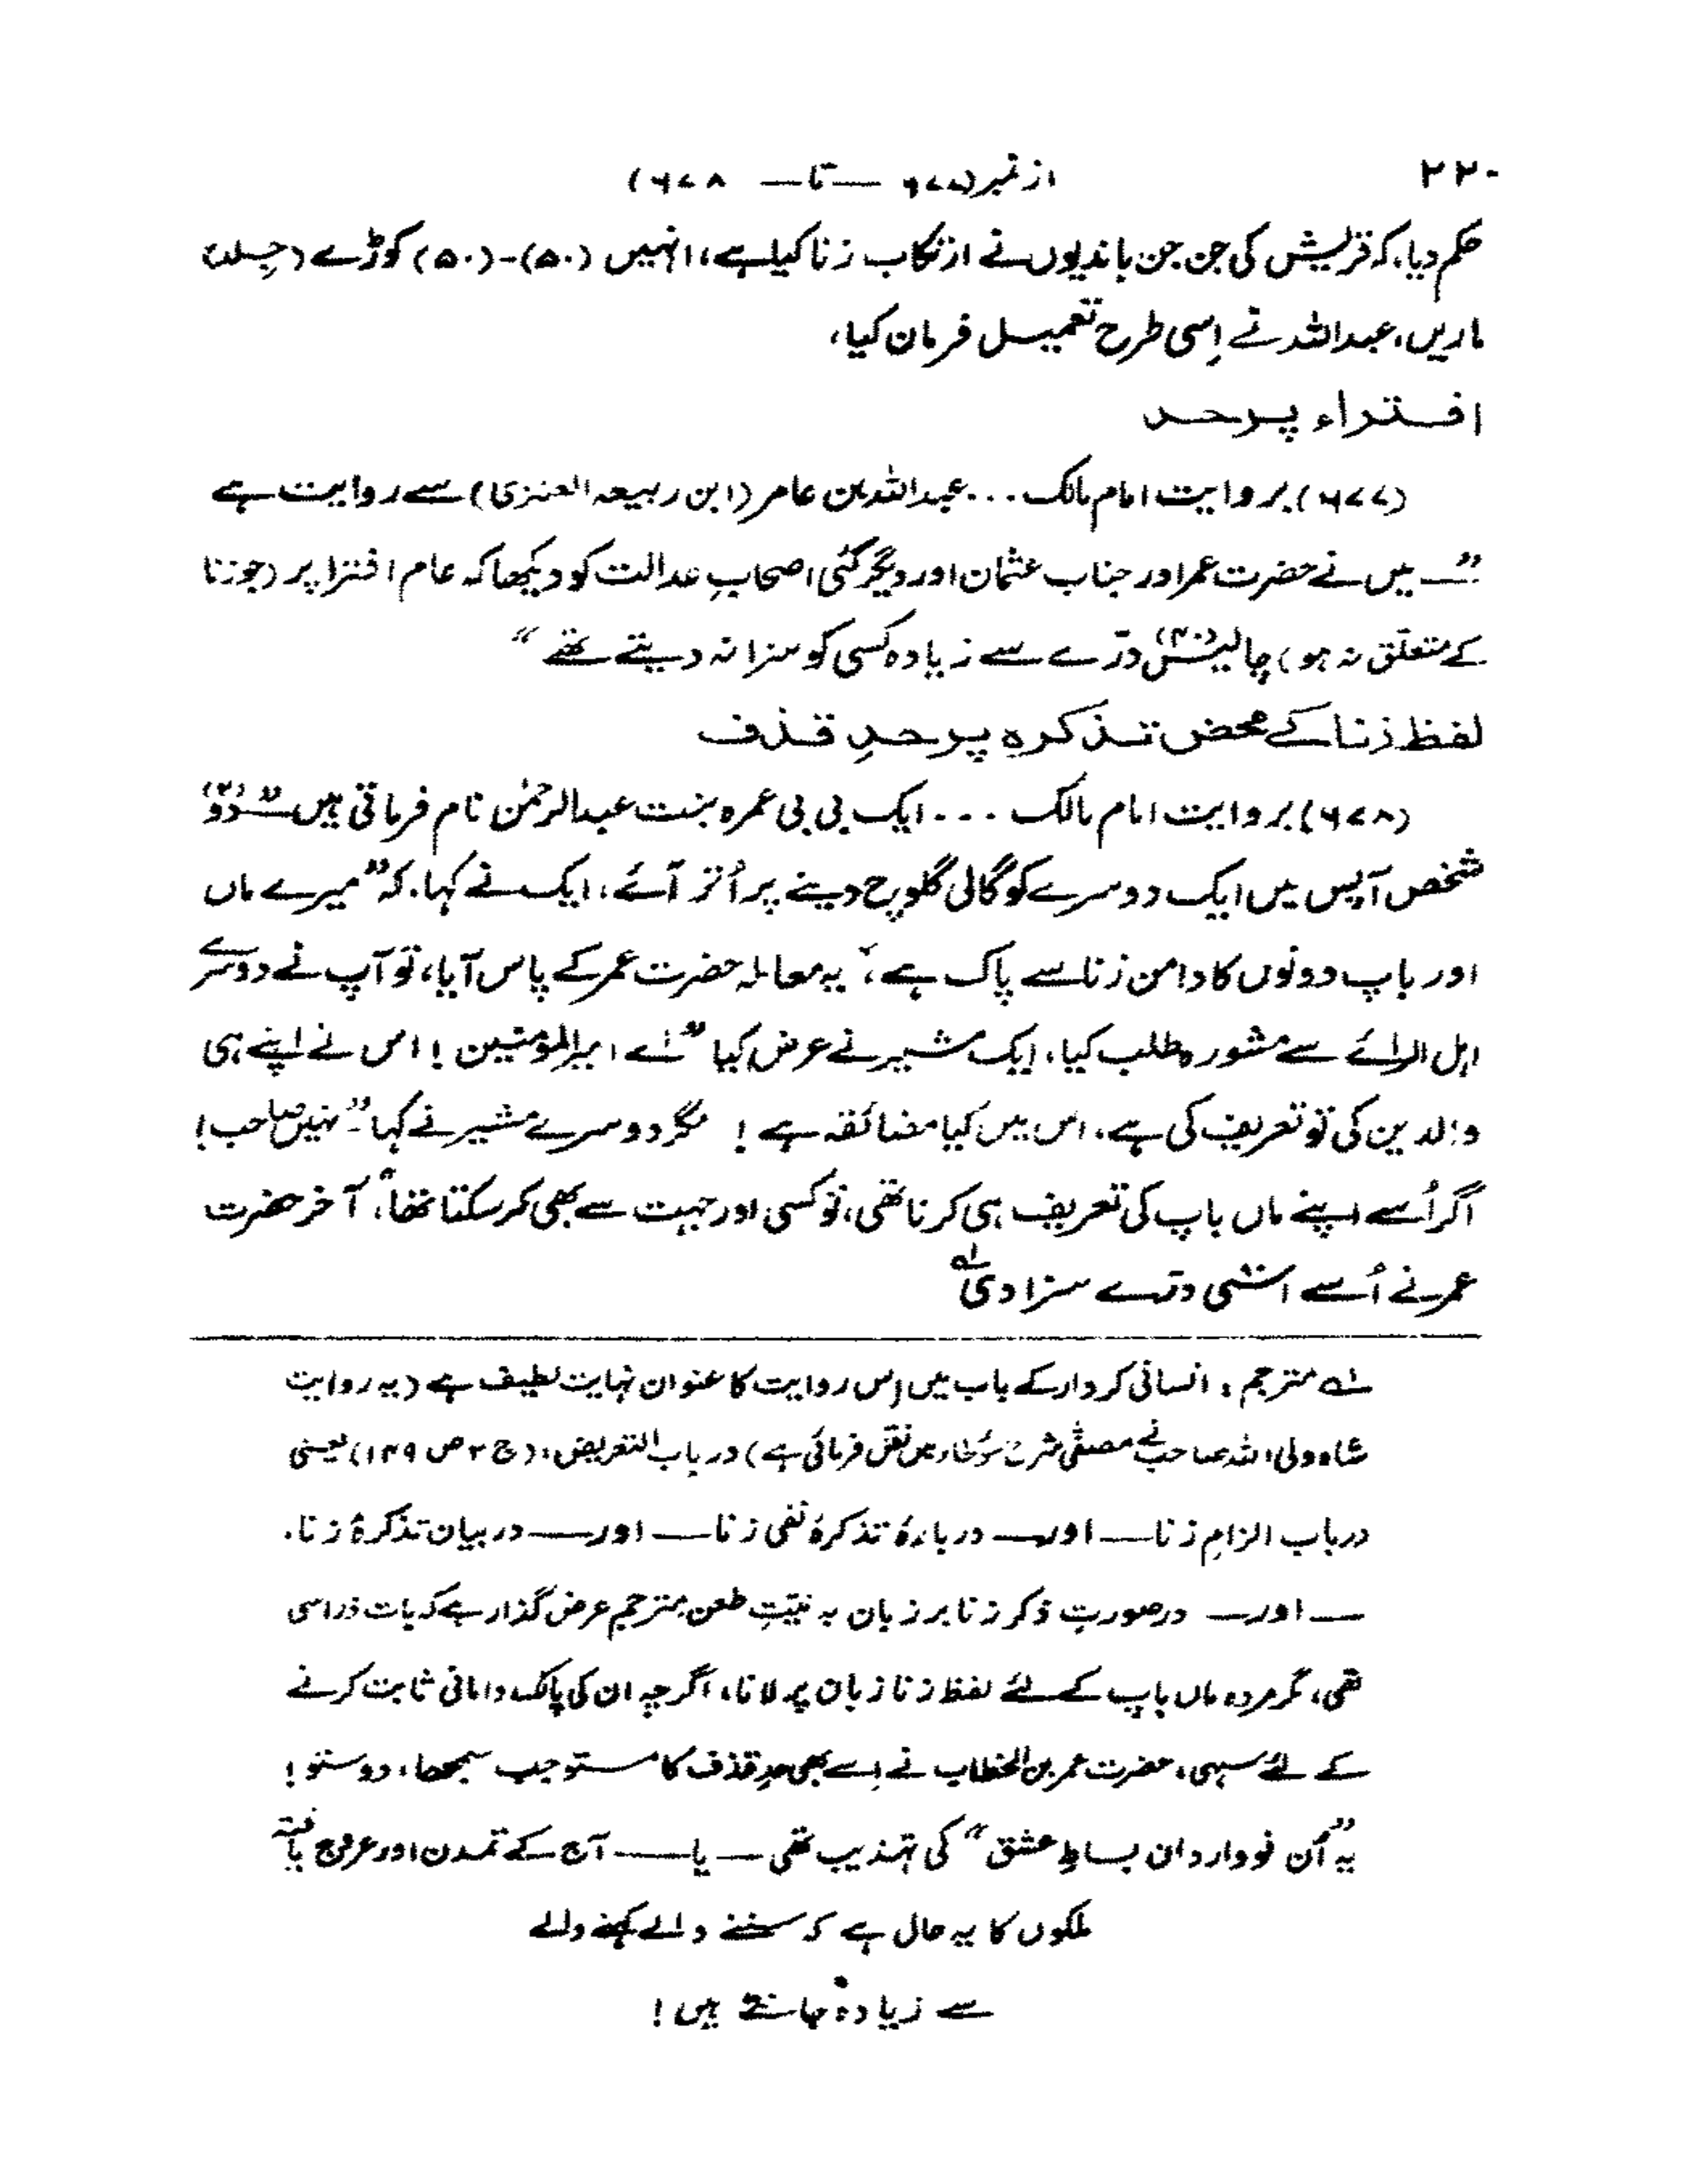 ۲۲۰
از نمبر (۶۷۵ — تا — ۶۷۸)
حکم دیا، کہ قریش کی جن جن باندیوں نے ارتکاب زنا کیا ہے، انہیں (۵۰)-(۵۰) کوڑے (جلد)
ماریں، عبداللہ نے اِسی طرح تعمیل فرمان کیا،
افتراء پر حد
(۶۷۷) بروایت امام مالک ... عبداللہ بن عامر (ابن ربیعہ العنزی) سے روایت ہے
”میں نے حضرت عمر اور جناب عثمان اور دیگر کئی اصحابِ عدالت کو دیکھا کہ عام افترا پر (جو زنا
کے متعلق نہ ہو) چالیس (۴۰) درّے سے زیادہ کسی کو سزا نہ دیتے تھے“
لفظ زنا کے محض تذکرہ پر حدِ قذف
(۶۷۸) بروایت امام مالک ... ایک بی بی عمرہ بنت عبدالرحمٰن نام فرماتی ہیں ”دو (۲)
شخص آپس میں ایک دوسرے کو گالی گلوچ دینے پر اُتر آئے، ایک نے کہا، کہ ”میرے ماں
اور باپ دونوں کا دامن زنا سے پاک ہے،“ یہ معاملہ حضرت عمر کے پاس آیا، تو آپ نے دوسرے
اہل الرائے سے مشورہ طلب کیا، ایک مشیر نے عرض کیا ”اے امیرالمؤمنین! اس نے اپنے ہی
والدین کی تو تعریف کی ہے، اس میں کیا مضائقہ ہے! مگر دوسرے مشیر نے کہا ”نہیں صاحب!
اگر اُسے اپنے ماں باپ کی تعریف ہی کرنا تھی، تو کسی اور جہت سے بھی کر سکتا تھا“، آخر حضرت
عمر نے اُسے اسّی درّے سزا دی ۱؎
۱؎ مترجم : انسانی کردار کے باب میں اِس روایت کا عنوان نہایت لطیف ہے (یہ روایت
شاہ ولی اللہ صاحب نے مصفّٰی شرح مؤطا میں نقل فرمائی ہے) در باب التعریض، (ج ۲ ص ۱۴۹) یعنی
درباب الزامِ زنا — اور — دربارۂ تذکرۂ نفی زنا — اور — در بیان تذکرۂ زنا،
— اور — درصورتِ ذکر زنا بر زبان بہ نیّتِ طعن مترجم عرض گذار ہے کہ بات ذرا سی
تھی، مگر مردہ ماں باپ کے لئے لفظ زنا زبان پر لانا، اگرچہ ان کی پاک دامانی ثابت کرنے
کے لئے سہی، حضرت عمر بن الخطاب نے اِسے بھی حدِ قذف کا مستوجب سمجھا، دوستو!
یہ ”اُن نوواردان بساطِ عشق“ کی تہذیب تھی — یا — آج کے تمدن اور عروج یافتہ
ملکوں کا یہ حال ہے کہ سننے والے کہنے والے
سے زیادہ جانتے ہیں!